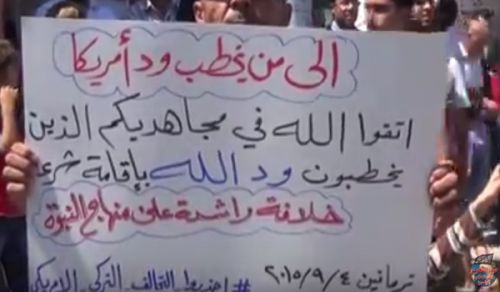 الى من يخطب ود أمريكا
اتقوا الله في مجاهديكم الذين
يخطبون ود الله بإقامة شرع
خلافة راشدة على منهاج النبوة
ترمانين ٢٠١٥/٩/٤
التحالف التركي الامريكي